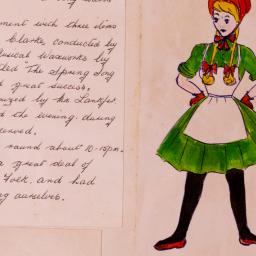 ment with three items
Clarke conducted by
usical waxworks by
led The Spring Song
great success.
ized by the
d the evening during
erved.
round about 10-15pm.
a great deal of
Folk, and had
ng ourselves.